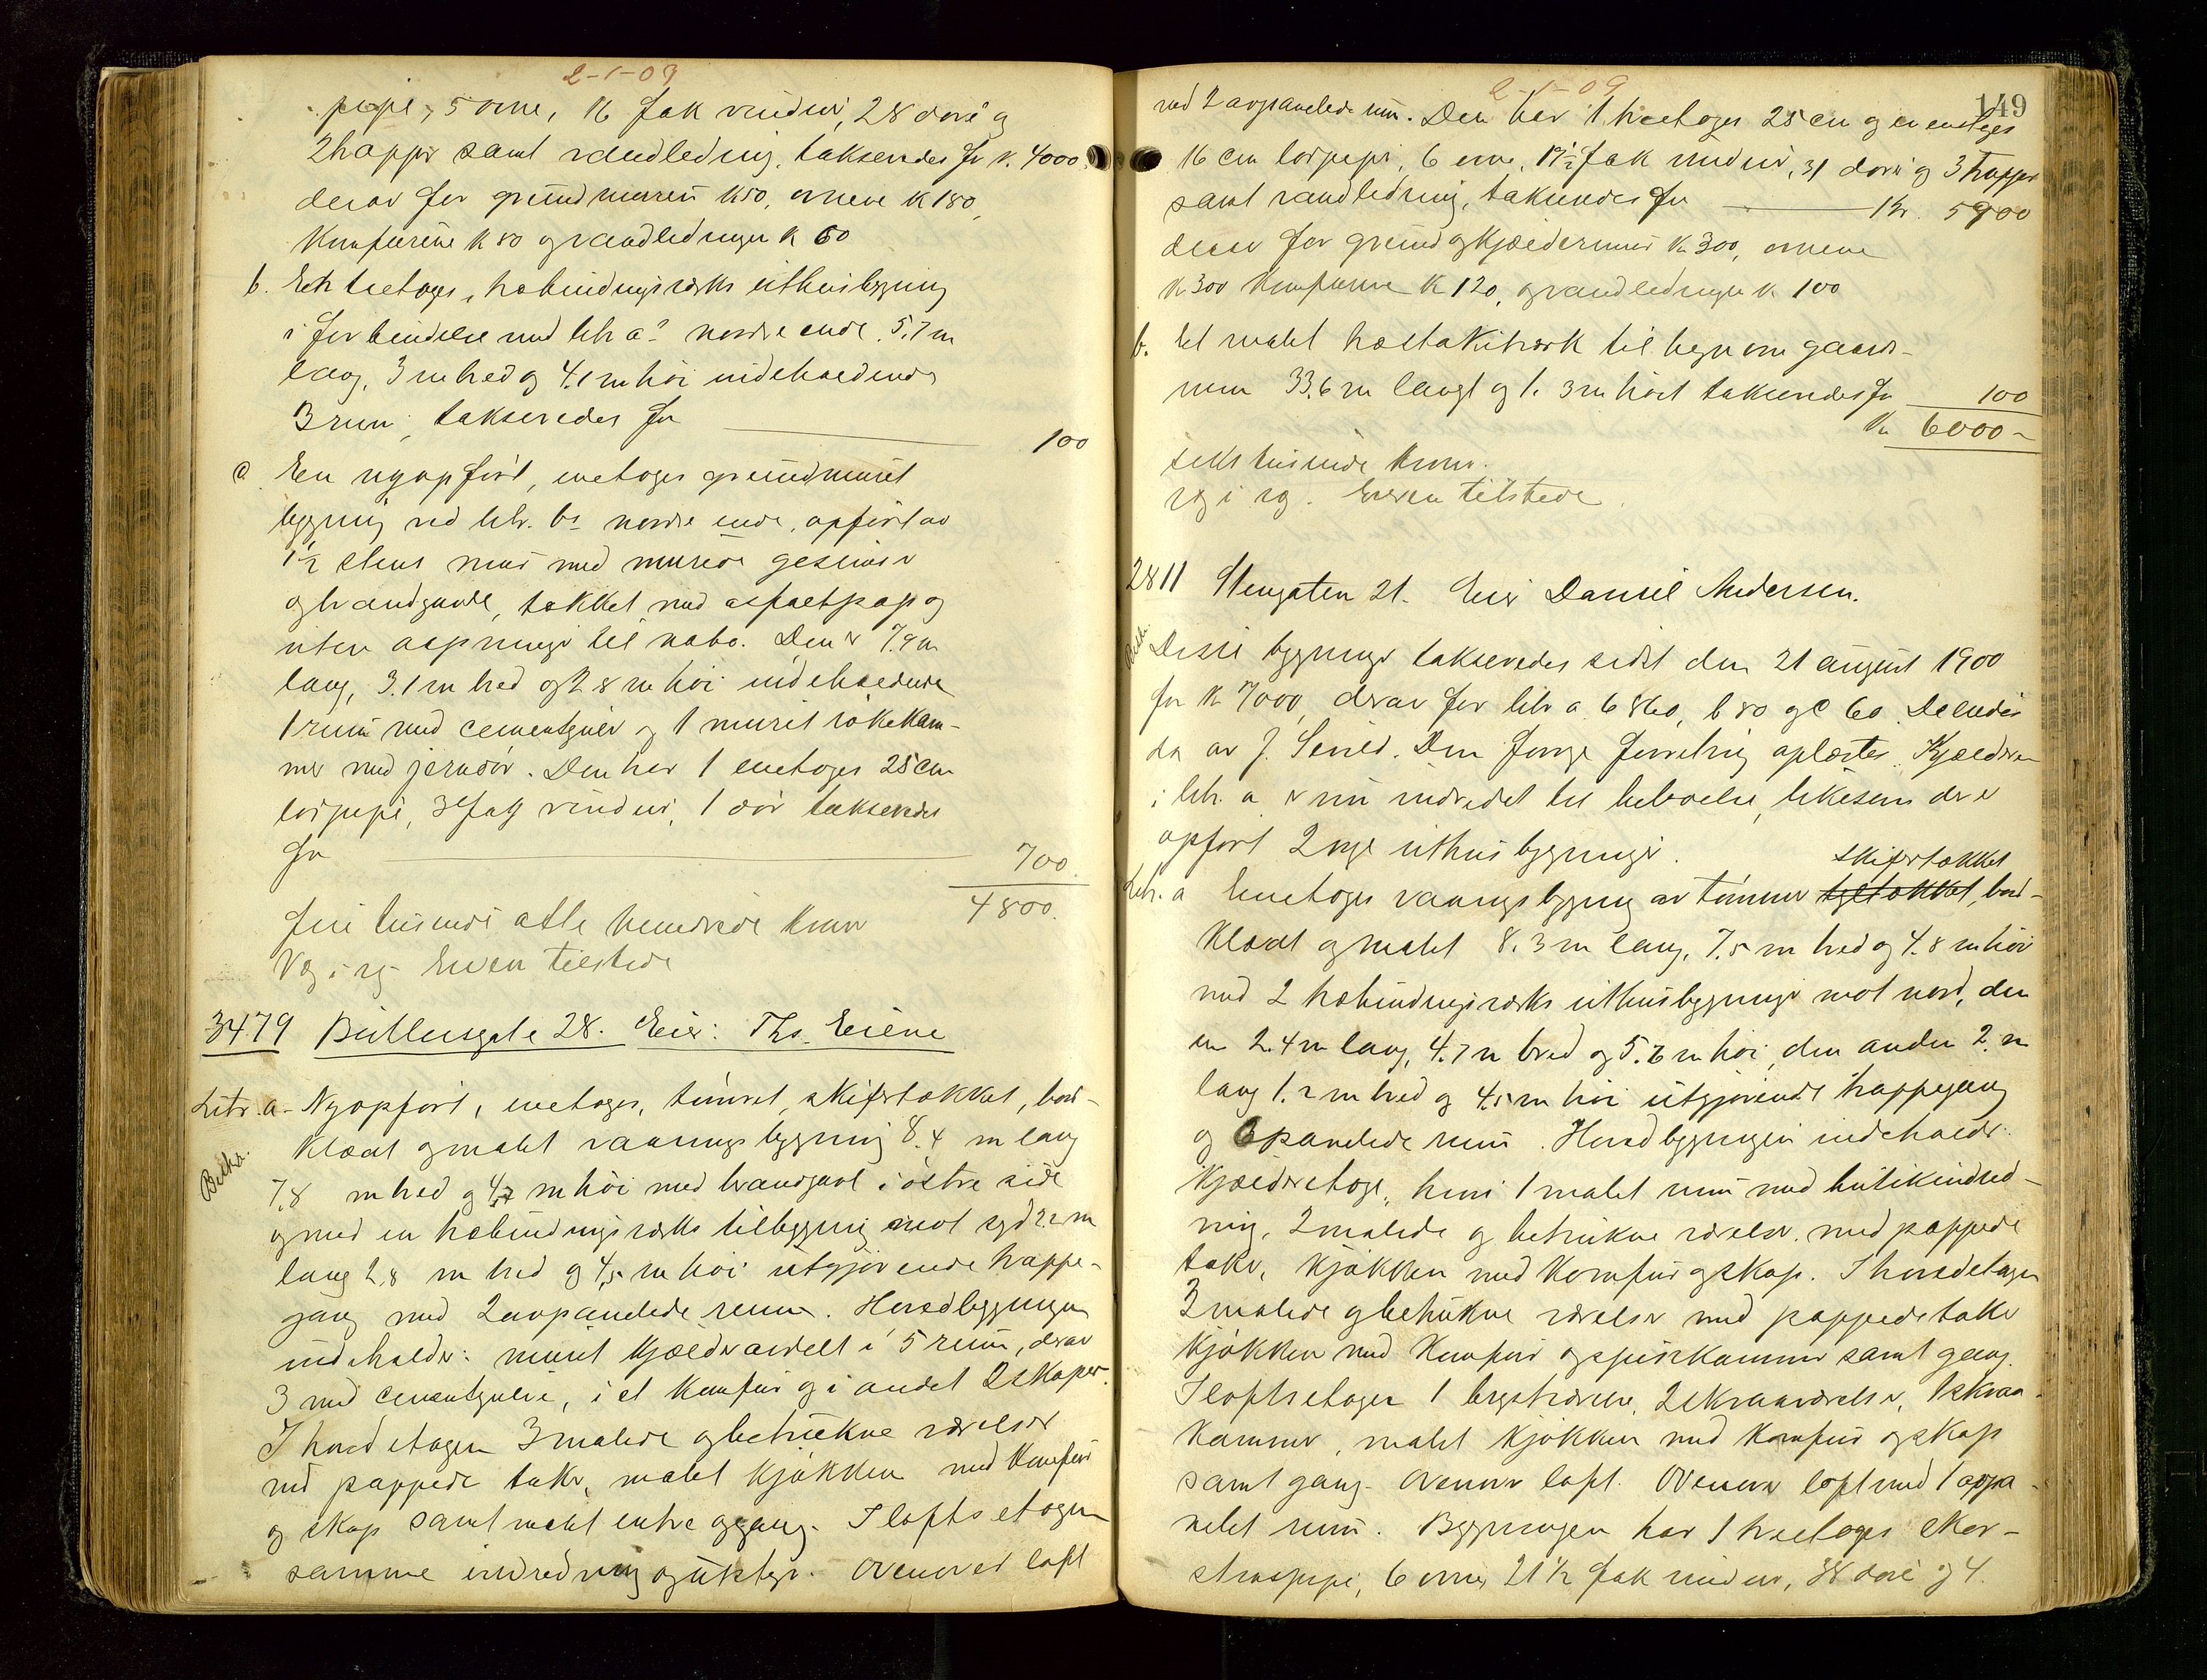 2-1-09
pipe, 5 ovne, 16 fak vinduer, 28 dører og
2 trapper samt vandledning, takseredes for kr. 4000.
derav for grundmuren k 50, ovnene k 180,
Komfurene k 80 og vandledningen k 60
b. En toetages, træbindingsværks uthusbygning
i forbindelse med litr a's nordre ende. 5.7 m
lang, 3 m bred og 4.1 m høi indeholdende
3 rum, takseredes for 100
c. En nyopført, enetages grundmuret
bygning ved litr. b's nordre ende, opført av
1½ stens mur med murede gesimser
og brandgavle, tækket med asfaltpap og
uten aapninger til nabo. Den er 7.9 m
lang, 3.1 m bred og 2.8 m høi indeholdende
1 rum med cementgulv og 1 muret røkekam-
mer med jerndør. Den har 1 enetages 25 cm
lorpipe, 3 fag vinduer, 1 dør takseredes
for 700.
4800.
fire tusinde otte hundrede kroner
Vg i vg. Eieren tilstede
3479 Bulleusgate 28. Eier: Ths. Eiene
Litr. a. Nyopført, enetages, tømret, skifertækket, bord-
Betha.
klædt og malet vaaningsbygning 8.4 m lang
7.8 m bred og 4.7 m høi med brandgavl i østre side
og med en træbindingsværks tilbygning mot syd 2.2 m
lang 2.8 m bred og 4.5 m høi utgjørende trappe-
gang med 2 avpanelede rum. Hovedbygningen
indeholder: muret kjælder avdelt i 5 rum, derav
3 med cementgulv, i et komfur og i andet 2 skaper.
I hovedetagen 3 malede og betrukne værelser
med pappede take, malet kjøkken med komfur
og skap samt malet entre og gang. I loftsetagen
samme indredning og utstyr. Ovenover loft
2-1-09
149
med 2 avpanelede rum. Den har 1 toetages 25 cm og en enetages
16 cm lorpipe, 6 ovne, 17½ fak vinduer, 31 dører og 3 trapper
samt vandledning, takseredes for Kr. 5900
derav for grund og kjældermur k 300, ovnene
k 300 komfurene k 120, og vandledningen k 100
b. Et malet træstakitværk til hegn om gaards-
rum 33.6 m langt og 1.3 m høit takseredes for 100
Kr 6000-
seks tusinde kroner.
vg i vg. Eieren tilstede.
2811 Stengaten 21. Eier Daniel Andersen.
Betha.
Disse bygninger takseredes sidst den 21 august 1900
for k 7000, derav for litr a 6860, b 80 og c 60. De eiedes
da av J. Seveld. Den forrige forretning oplæstes. Kjælderen
i litr. a er nu indredet til beboelse, likesom der er
opført 2 nye uthusbygninger.
skifertækket
Litr. a Enetages vaaningsbygning av tømmer tegltækket, bord-
klædt og malet 8.3 m lang, 7.5 m bred og 4.8 m høi
med 2 træbindingsværks uthusbygninger mot nord, den
ene 2.4 m lang, 4.7 m bred og 5.6 m høi, den anden 2 m
lang 1.2 m bred og 4.5 m høi utgjørende trappegang
og 6 panelede rum. Hovedbygningen indeholder:
Kjælderetage, hvori 1 malet rum med butikindred-
ning, 2 malede og betrukne værelser med pappede
take, kjøkken med komfur og skap. I hovedetagen
3 malede og betrukne værelser med pappede take
kjøkken med komfur og spiskammer samt gang.
I loftsetagen 1 brystværelse, 2 skraaværelser, 1 skraa-
kammer, malet kjøkken med komfur og skap
samt gang. Ovenover loft. Ovenover loft med 1 avpa-
nelet rum. Bygningen har 1 toetages skor-
stenspipe, 6 ovner, 21½ fak vinduer, 38 dører og 4